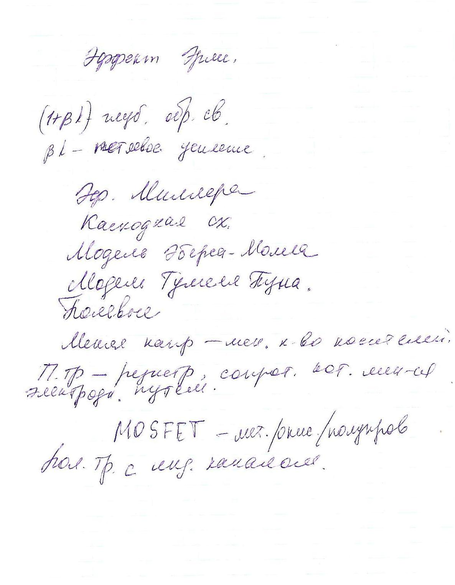 Эффект Эрли.
(1+βL) глуб. обр. св.
βL – петлевое усиление
Эф. Миллера
Каскодная сх.
Модель Эберса-Молла
Модель Гумеля Пуна.
Полевые
Меняя напр – мен. к-во носителей.
П. тр – резистр, сопрот. кот. мен-ся
электродн. путем.
MOSFET – мет./окис/полупров
пол. тр. с инд. каналом.